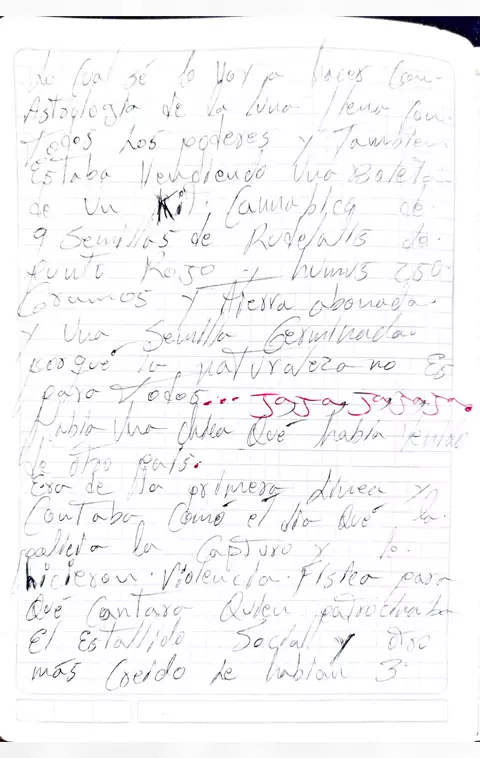 Lo Cual sé lo Voy a hacer Con
Astrología de la Luna llena Con
Todos Los poderes y También
Estaba Vendiendo Una Boleta
de Un Kit. Cannabico de
9 Semillas de Rudelalis de
punto Rojo y humus 250
Gramos y Tierra abonada.
y Una Semilla Germinada.
porqué la naturaleza no Es
para Todos... Jaja, Jajaja.
Había Una chica Qué había Venido
de otro país.
Era de la primera Línea y
Contaba Comó el día Qué la
policia la Capturo y le
hicieron. Violencia. Física para
Qué Cantara Quien patrocinaba
El Estallido Social y otro
más Creido de habían 3